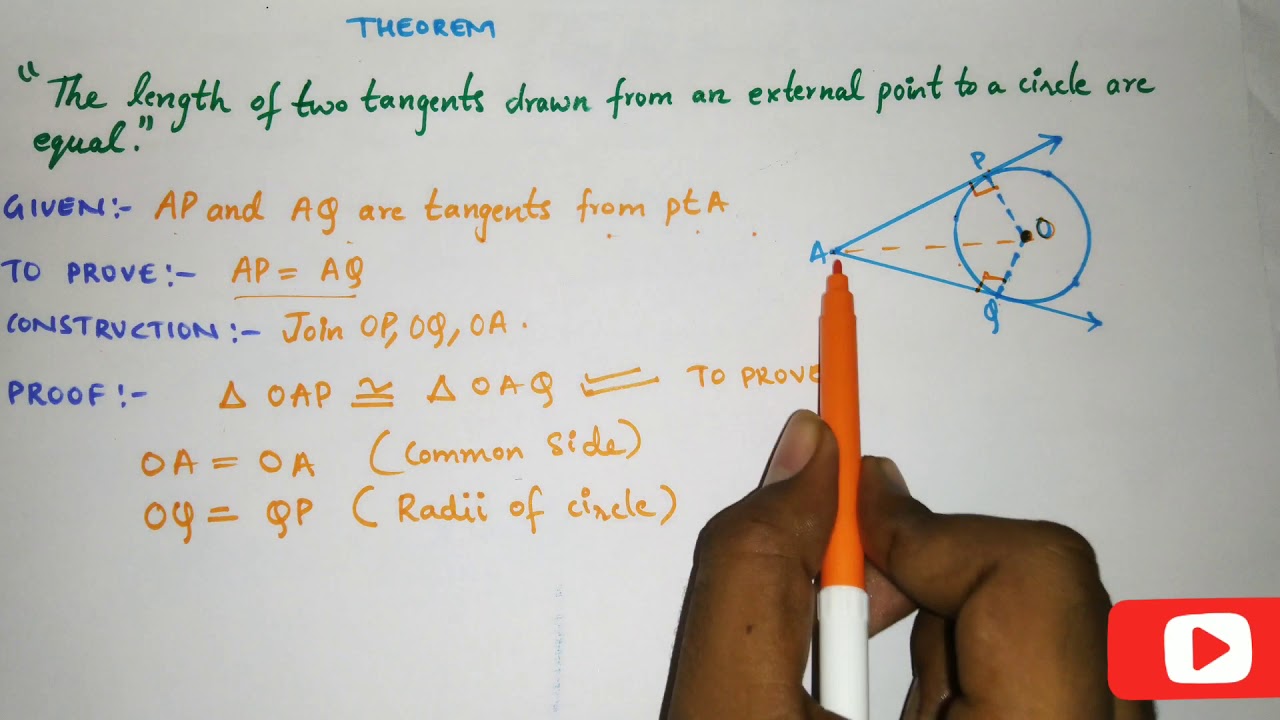 THEOREM
"The length of two tangents drawn from an external point to a circle are
equal."
GIVEN:- AP and AQ are tangents from pt A
TO PROVE:- AP = AQ
CONSTRUCTION:- Join OP, OQ, OA.
PROOF:- Δ OAP ≅ Δ OAQ TO PROVE
OA = OA (Common side)
OQ = QP (Radii of circle)
P
A
O
Q